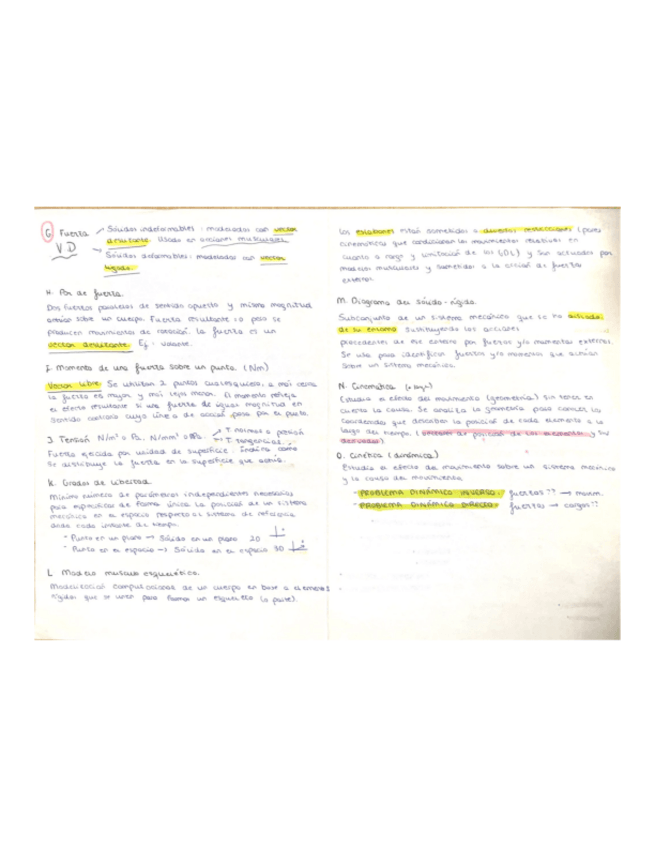 G Fuerza → Sólidos indeformables: modelados con vector
deslizante. Usado en acciones musculares
V.D → Sólidos deformables: modelados con vector
ligado.
H. Par de fuerza.
Dos fuerzas paralelas de sentido opuesto y misma magnitud
actúan sobre un cuerpo. Fuerza resultante = 0 pero se
producen movimientos de rotación. La fuerza es un
vector deslizante. Ej: volante.
I. Momento de una fuerza sobre un punto. (Nm)
Vector libre. Se utilizan 2 puntos cualesquiera, a más cerca
la fuerza es mayor y más lejos menor. El momento refleja
el efecto resultante si una fuerza de igual magnitud en
sentido contrario cuya línea de acción pasa por el punto.
J. Tensión N/m² o Pa. N/mm² o MPa. → T. normal o presión
→ T. tangencial.
Fuerza ejercida por unidad de superficie. Indica cómo
se distribuye la fuerza en la superficie que actúa.
K. Grados de Libertad.
Mínimo número de parámetros independientes necesarios
para especificar de forma única la posición de un sistema
mecánico en el espacio respecto al sistema de referencia
dado cada instante de tiempo.
- Punto en un plano → Sólido en un plano 2D
- Punto en el espacio → Sólido en el espacio 3D
L. Modelo músculo esquelético.
Modelización computacional de un cuerpo en base a elementos
rígidos que se unen para formar un esqueleto (o parte).
Los eslabones están sometidos a diversas restricciones (pares
cinemáticos que condicionan los movimientos relativos en
cuanto a rango y limitación de los GDL) y son actuados por
modelos musculares y sometidos a la acción de fuerzas
externas.
M. Diagrama del sólido-rígido.
Subconjunto de un sistema mecánico que se ha aislado
de su entorno sustituyendo las acciones
procedentes de ese entorno por fuerzas y/o momentos externos.
Se usa para identificar fuerzas y/o momentos que actúan
sobre un sistema mecánico.
N. Cinemática
Estudia el efecto del movimiento (geometría) sin tener en
cuenta la causa. Se analiza la geometría para conocer las
coordenadas que describen la posición de cada elemento a lo
largo del tiempo. (vectores de posición de los elementos y sus
derivadas).
O. Cinética (dinámica)
Estudia el efecto del movimiento sobre un sistema mecánico
y la causa del movimiento.
- PROBLEMA DINÁMICO INVERSO: fuerzas?? → movim.
- PROBLEMA DINÁMICO DIRECTO: fuerzas → cargos??